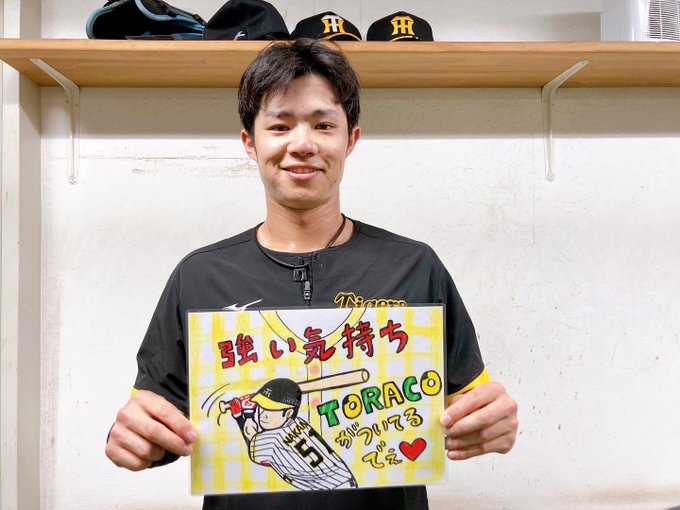 HT
HT
Tigers
強い気持ち
TORACO
がついてる
でぇ♥
NAKANO
51